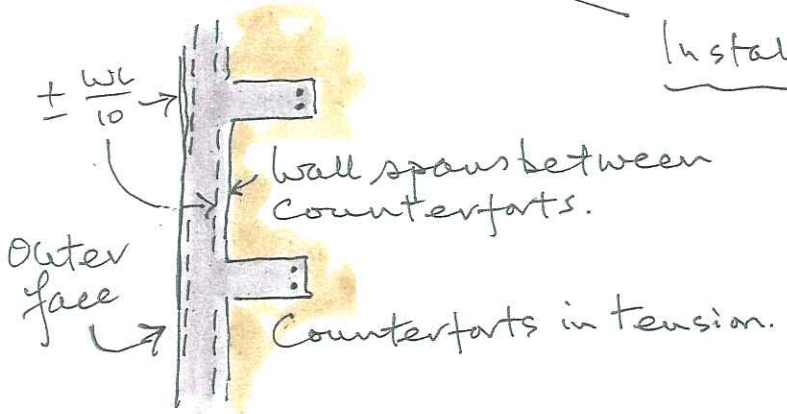 Instal
± WL
10
Wall spans between
counterforts.
Outer
face
Counterforts in tension.